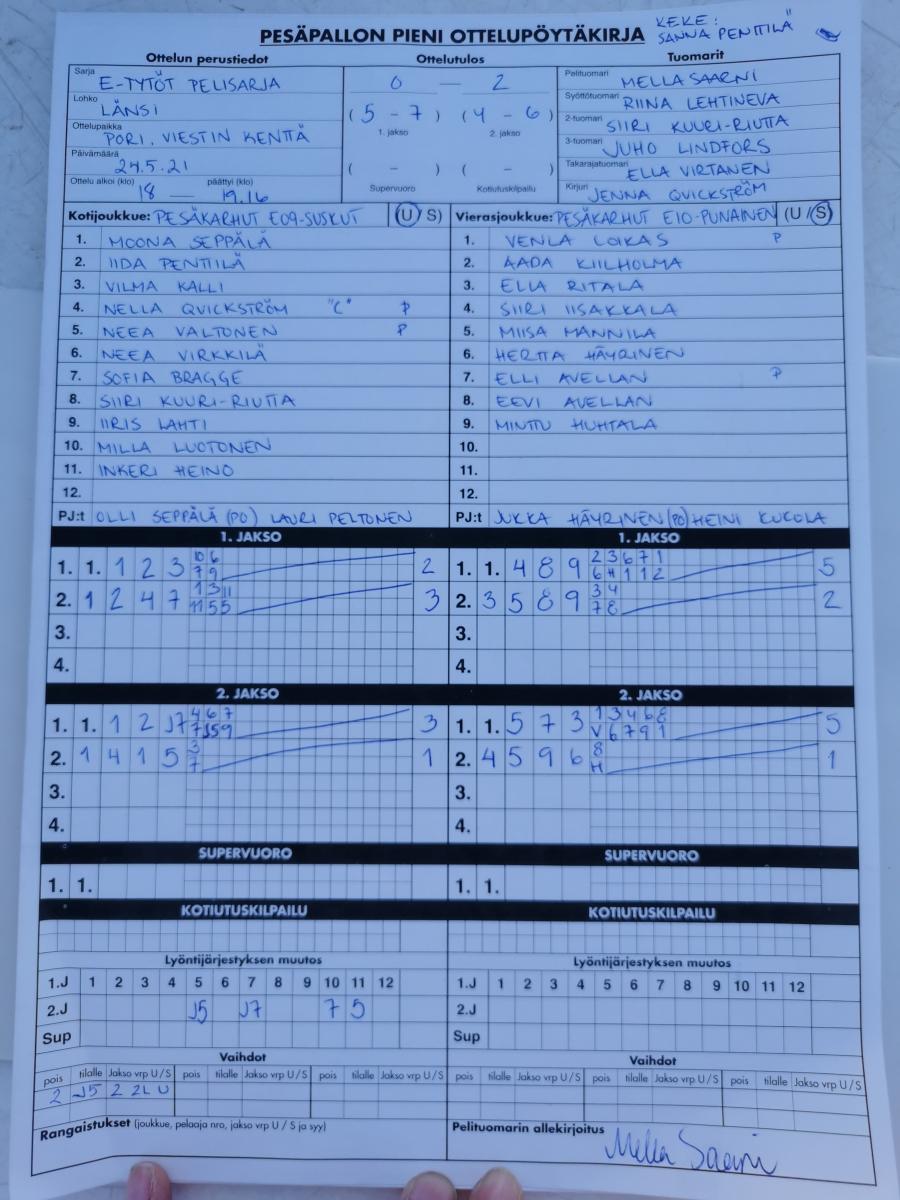 KEKE:
SANNA PENTTILÄ
PESÄPALLON PIENI OTTELUPÖYTÄKIRJA
Ottelun perustiedot Ottelutulos Tuomarit
Sarja E-TYTÖT PELISARJA 0 — 2 Pelituomari MELLA SAARNI
Lohko LÄNSI (5 - 7) (4 - 6) Syöttötuomari RIINA LEHTINEVA
Ottelupaikka PORI, VIESTIN KENTTÄ 1. jakso 2. jakso 2-tuomari SIIRI KUURI-RIUTTA
Päivämäärä 24.5.21 ( - ) ( - ) 3-tuomari JUHO LINDFORS
Takarajatuomari ELLA VIRTANEN
Ottelu alkoi (klo) 18 — päättyi (klo) 19.16 Supervuoro Kotiutuskilpailu Kirjuri JENNA QUICKSTRÖM
Kotijoukkue: PESÄKARHUT E09-SUSKUT (U/S) Vierasjoukkue: PESÄKARHUT E10-PUNAINEN (U/S)
1. MOONA SEPPÄLÄ 1. VENLA LOIKAS P
2. IIDA PENTTILÄ 2. AADA KIILHOLMA
3. VILMA KALLI 3. ELLA RITALA
4. NELLA QUICKSTRÖM "C" P 4. SIIRI IISAKKALA
5. NEEA VALTONEN P 5. MIISA MANNILA
6. NEEA VIRKKILÄ 6. HERTTA HÄYRINEN
7. SOFIA BRAGGE 7. ELLI AVELLAN P
8. SIIRI KUURI-RIUTTA 8. EEVI AVELLAN
9. IIRIS LAHTI 9. MINTTU HUHTALA
10. MILLA LUOTONEN 10.
11. INKERI HEINO 11.
12. 12.
PJ:t OLLI SEPPÄLÄ (PO) LAURI PELTONEN PJ:t JUKKA HÄYRINEN (PO) HEINI KUKOLA
1. JAKSO 1. JAKSO
1. 1. 1 2 3 10 6 2 1. 1. 4 8 9 2 3 6 7 1 5
7 9 6 H 1 1 2
2. 1 2 4 7 1 3 11 3 2. 3 5 8 9 3 4 2
11 5 5 7 8
3. 3.
4. 4.
2. JAKSO 2. JAKSO
1. 1. 1 2 J7 4 6 7 3 1. 1. 5 7 3 1 3 4 6 8 5
7 J5 9 V 6 7 9 1
2. 1 4 1 5 3 1 2. 4 5 9 6 8 1
7 H
3. 3.
4. 4.
SUPERVUORO SUPERVUORO
1. 1. 1. 1.
KOTIUTUSKILPAILU KOTIUTUSKILPAILU
Lyöntijärjestyksen muutos Lyöntijärjestyksen muutos
1.J 1 2 3 4 5 6 7 8 9 10 11 12 1.J 1 2 3 4 5 6 7 8 9 10 11 12
2.J J5 J7 7 5 2.J
Sup Sup
Vaihdot Vaihdot
pois tilalle Jakso vrp U/S pois tilalle Jakso vrp U/S pois tilalle Jakso vrp U/S pois tilalle Jakso vrp U/S pois tilalle Jakso vrp U/S pois tilalle Jakso vrp U/S
2 J5 2 2L U
Rangaistukset (joukkue, pelaaja nro, jakso vrp U / S ja syy) Pelituomarin allekirjoitus
Mella Saarni